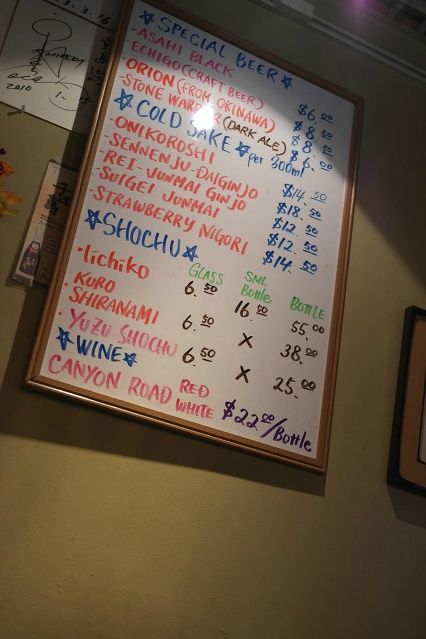 ☆SPECIAL BEER☆
-ASAHI BLACK $6.00
-ECHIGO (CRAFT BEER) $8.50
-ORION (FROM OKINAWA) $8.50
-STONE WARRIOR (DARK ALE) $6.00
☆COLD SAKE☆ per 300ml
-ONIKOROSHI $14.50
-SENNENJU-DAIGINJO $18.50
-REI-JUNMAI GINJO $12.50
-SUIGEI JUNMAI $12.50
-STRAWBERRY NIGORI $14.50
☆SHOCHU☆
GLASS SML Bottle BOTTLE
·Iichiko 6.50 16.50 55.00
·KURO SHIRANAMI 6.50 X 38.00
·YUZU SHOCHU 6.50 X 25.00
☆WINE☆
CANYON ROAD RED WHITE $22.00/Bottle
2010